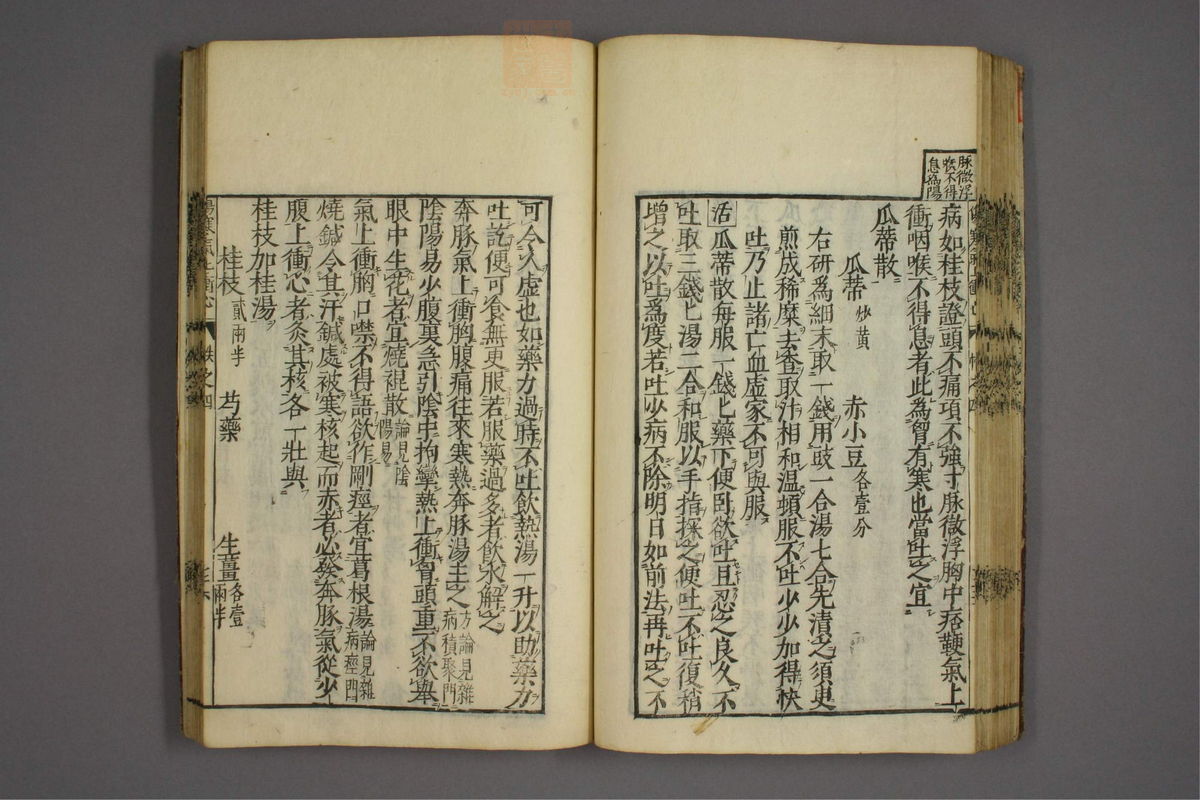 脉微浮
息為陽
病如桂枝證頭不痛項不強寸脉微浮胸中痞鞕氣上
衝咽喉不得息者此爲胷有寒也當吐之宜
瓜蒂散
瓜蒂炒黄 赤小豆各壹分
右研爲細末取一錢用豉一合湯七合先漬之須臾
煎成稀糜去查取汁相和温頓服不吐少少加得快
吐乃止諸亡血虛家不可與服
活瓜蒂散每服一錢匕藥下便卧欲吐且忍之良久不
吐取三錢匕湯二合和服以手指探之便吐不吐復稍
增之以吐爲度若吐少病不除明日如前法再吐之不
可令人虛也如藥力過時不吐飲熱湯一升以助藥力
吐訖便可食無更服若服藥過多者飲水解之
奔豚氣上衝胸腹痛往來寒熱奔豚湯主之方論見雜病積聚門
陰陽易少腹裏急引陰中拘攣熱上衝胷頭重不欲舉
眼中生花者宜燒裩散論見陰陽易
氣上衝胸口噤不得語欲作剛痙者宜葛根湯論見雜病痙門
燒鍼令其汗鍼處被寒核起而赤者必發奔豚氣從少
腹上衝心者灸其核各一壯與
桂枝加桂湯
桂枝貳兩半 芍藥 生薑各壹兩半